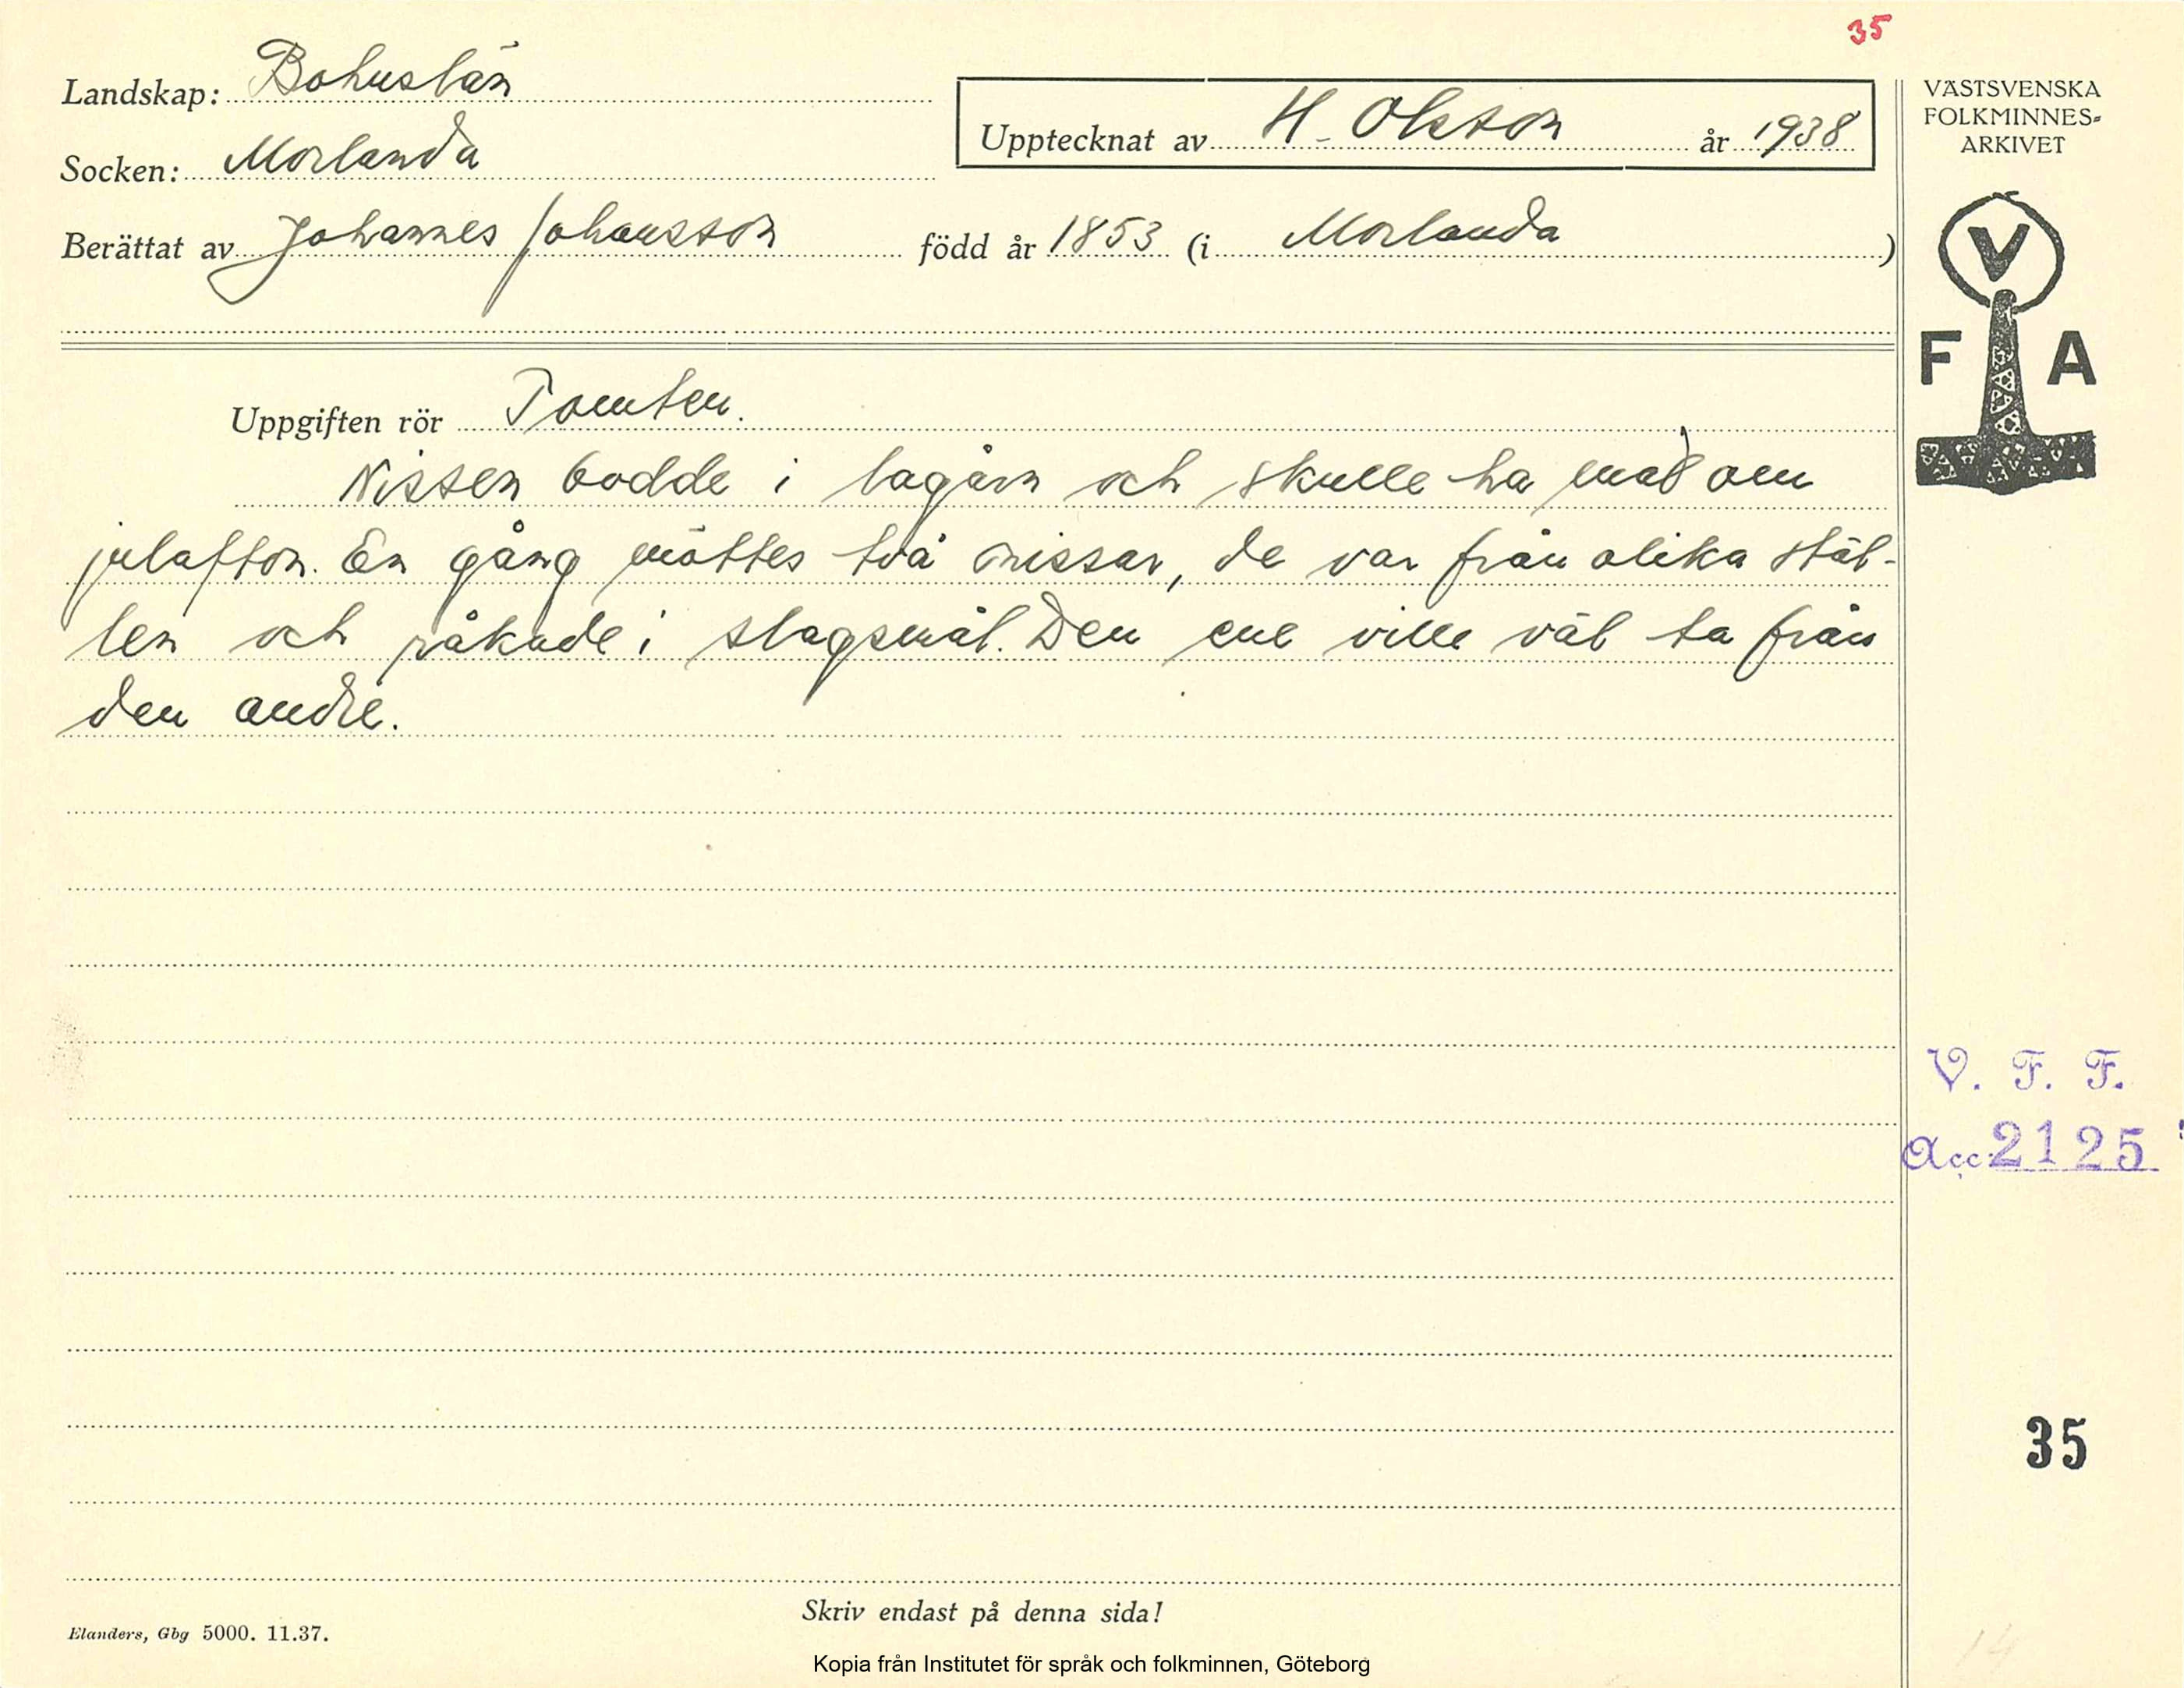 35
Landskap: Bohuslän
Socken: Morlanda
Upptecknat av H. Olsson år 1938
Berättat av Johannes Johansson född år 1853 (i Morlanda)
VÄSTSVENSKA
FOLKMINNES-
ARKIVET
V
F A
Uppgiften rör Tomten.
Nissen bodde i lagårn och skulle ha mad om
julafton. En gång möttes två nissar, de var från olika stäl-
len och råkade i slagsmål. Den ene ville väl ta från
den andre.
V. F. F.
Acc. 2125
35
Skriv endast på denna sida!
Elanders, Gbg 5000. 11.37.
Kopia från Institutet för språk och folkminnen, Göteborg
14